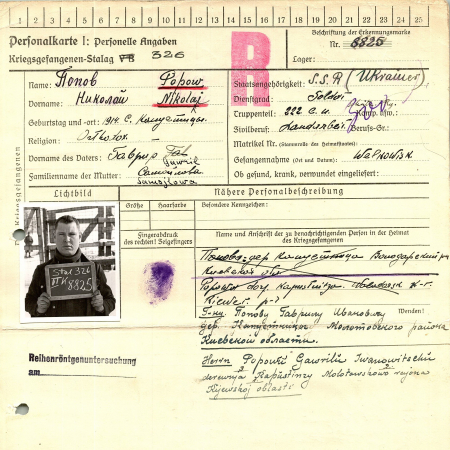 1 2 3 4 5 6 7 8 9 10 11 12 13 14 15 16 17 18 19 20 21 22 23 24 25
Personalkarte I: Personelle Angaben
Kriegsgefangenen-Stalag VB 326
Beschriftung der Erkennungsmarke
Nr. 8825
Lager:
R
Name: Попов Popow
Vorname: Николай Nikolaj
Geburtstag und -ort: 1914
Religion: Orthodox
Vorname des Vaters: Гаврил
Gawril
Familienname der Mutter: Самойлова
Samojlowa
Staatsangehörigkeit: S.S.R (Ukrainer)
Dienstgrad: Soldat
Truppenteil: 222
Zivilberuf: Landarbeit. Berufs-Gr.
Matrikel Nr. (Stammrolle des Heimatstaates)
Gefangennahme (Ort und Datum): Walkowisk
Ob gesund, krank, verwundet eingeliefert:
Lichtbild
Größe
Haarfarbe
Fingerabdruck
des rechten! Zeigefingers
Nähere Personalbeschreibung
Besondere Kennzeichen:
Name und Anschrift der zu benachrichtigenden Person in der Heimat
des Kriegsgefangenen
Stal 326
8825
Киевской обл
Попову Гаврилу Ивановичу
Wenden!
дер. Молотовского района
Киевской области.
Herrn Gawrilu Iwanowitschu
derewnja Kapustinzy Molotowskowo rajona
Kijewskoj oblasti
Reihenröntgenuntersuchung
am